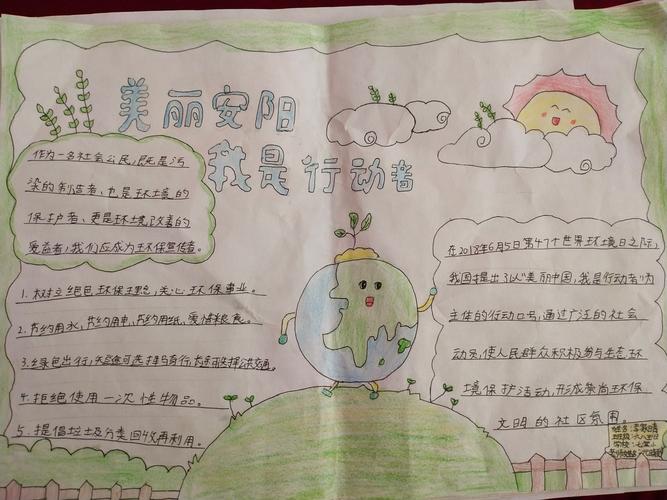 美丽安阳
我是行动者
作为一名社会公民,既是污
染的制造者、也是环境的
保护者、更是环境改善的
受益者,我们应成为环保宣传者。
1.树立绝色环保理念,关心环保事业。
2.节约用水,节约用电,节约用纸,爱惜粮食。
3.绿色出行,短途可选择步行,
4.拒绝使用一次性物品。
5、提倡垃圾分类回收再利用。
在2018年6月5日第47个世界环境日之际,
我国提出了以"美丽中国,我是行动者"为
主体的行动口号,通过广泛的社会
动员,使人民群众积极参与生态环
境保护活动,形成崇尚环保
文明的社区氛围。
姓名:
班级:
学校: